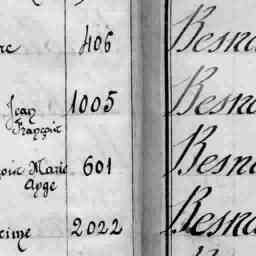 re 406 Besna
Jean
François 1005 Besna
çois Marie 601 Besna
Ange
xime 2022 Besna